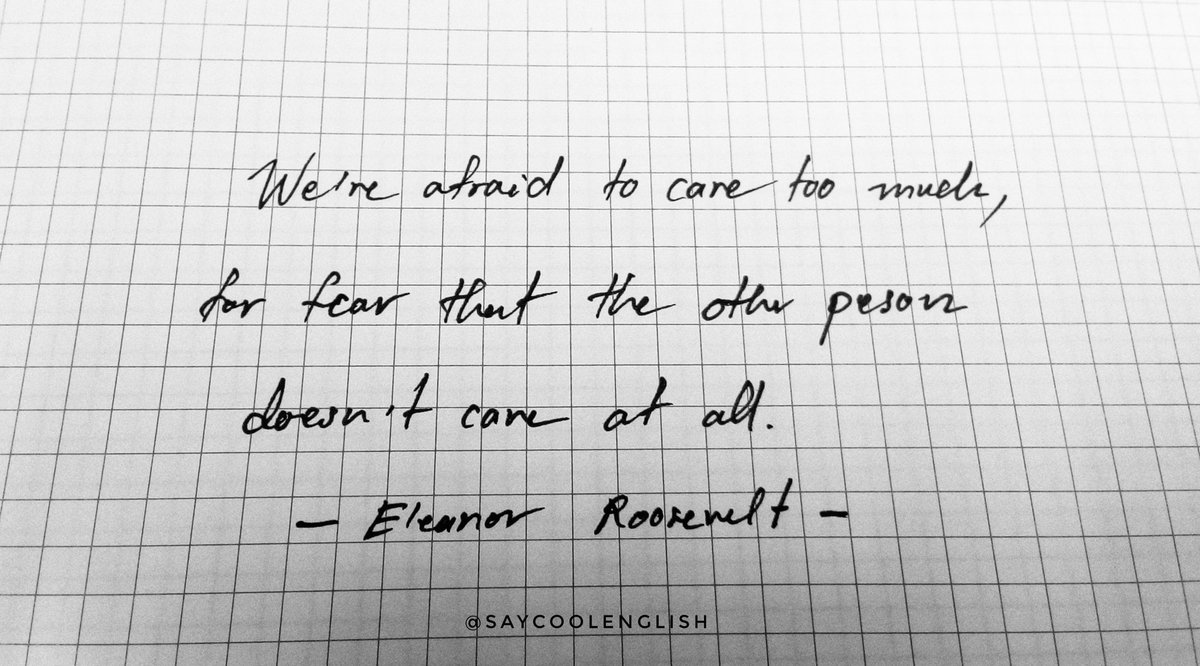 We're afraid to care too much,
for fear that the other person
doesn't care at all.
— Eleanor Roosevelt —
@SAYCOOLENGLISH